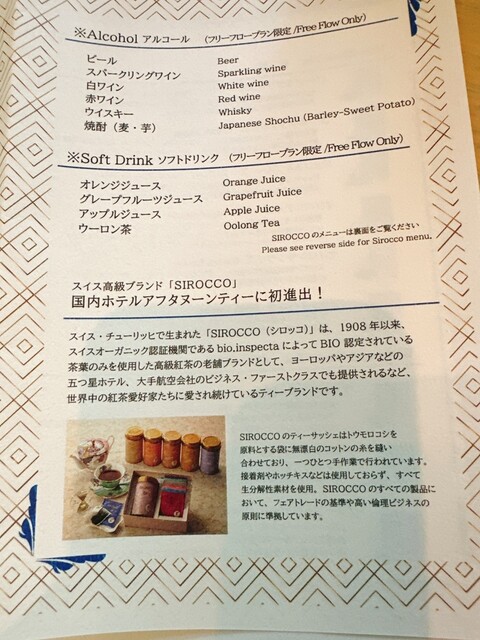 ※Alcohol アルコール （フリーフロープラン限定 /Free Flow Only）
ビール Beer
スパークリングワイン Sparkling wine
白ワイン White wine
赤ワイン Red wine
ウイスキー Whisky
焼酎（麦・芋） Japanese Shochu (Barley-Sweet Potato)
※Soft Drink ソフトドリンク （フリーフロープラン限定 /Free Flow Only）
オレンジジュース Orange Juice
グレープフルーツジュース Grapefruit Juice
アップルジュース Apple Juice
ウーロン茶 Oolong Tea
SIROCCO のメニューは裏面をご覧ください
Please see reverse side for Sirocco menu.
スイス高級ブランド「SIROCCO」
国内ホテルアフタヌーンティーに初進出！
スイス・チューリッヒで生まれた「SIROCCO（シロッコ）」は、1908 年以来、
スイスオーガニック認証機関である bio.inspecta によって BIO 認定されている
茶葉のみを使用した高級紅茶の老舗ブランドとして、ヨーロッパやアジアなどの
五つ星ホテル、大手航空会社のビジネス・ファーストクラスでも提供されるなど、
世界中の紅茶愛好家たちに愛され続けているティーブランドです。
SIROCCO のティーサッシェはトウモロコシを
原料とする袋に無漂白のコットンの糸を縫い
合わせており、一つひとつ手作業で行われています。
接着剤やホッチキスなどは使用しておらず、すべて
生分解性素材を使用。SIROCCO のすべての製品に
おいて、フェアトレードの基準や高い倫理ビジネスの
原則に準拠しています。